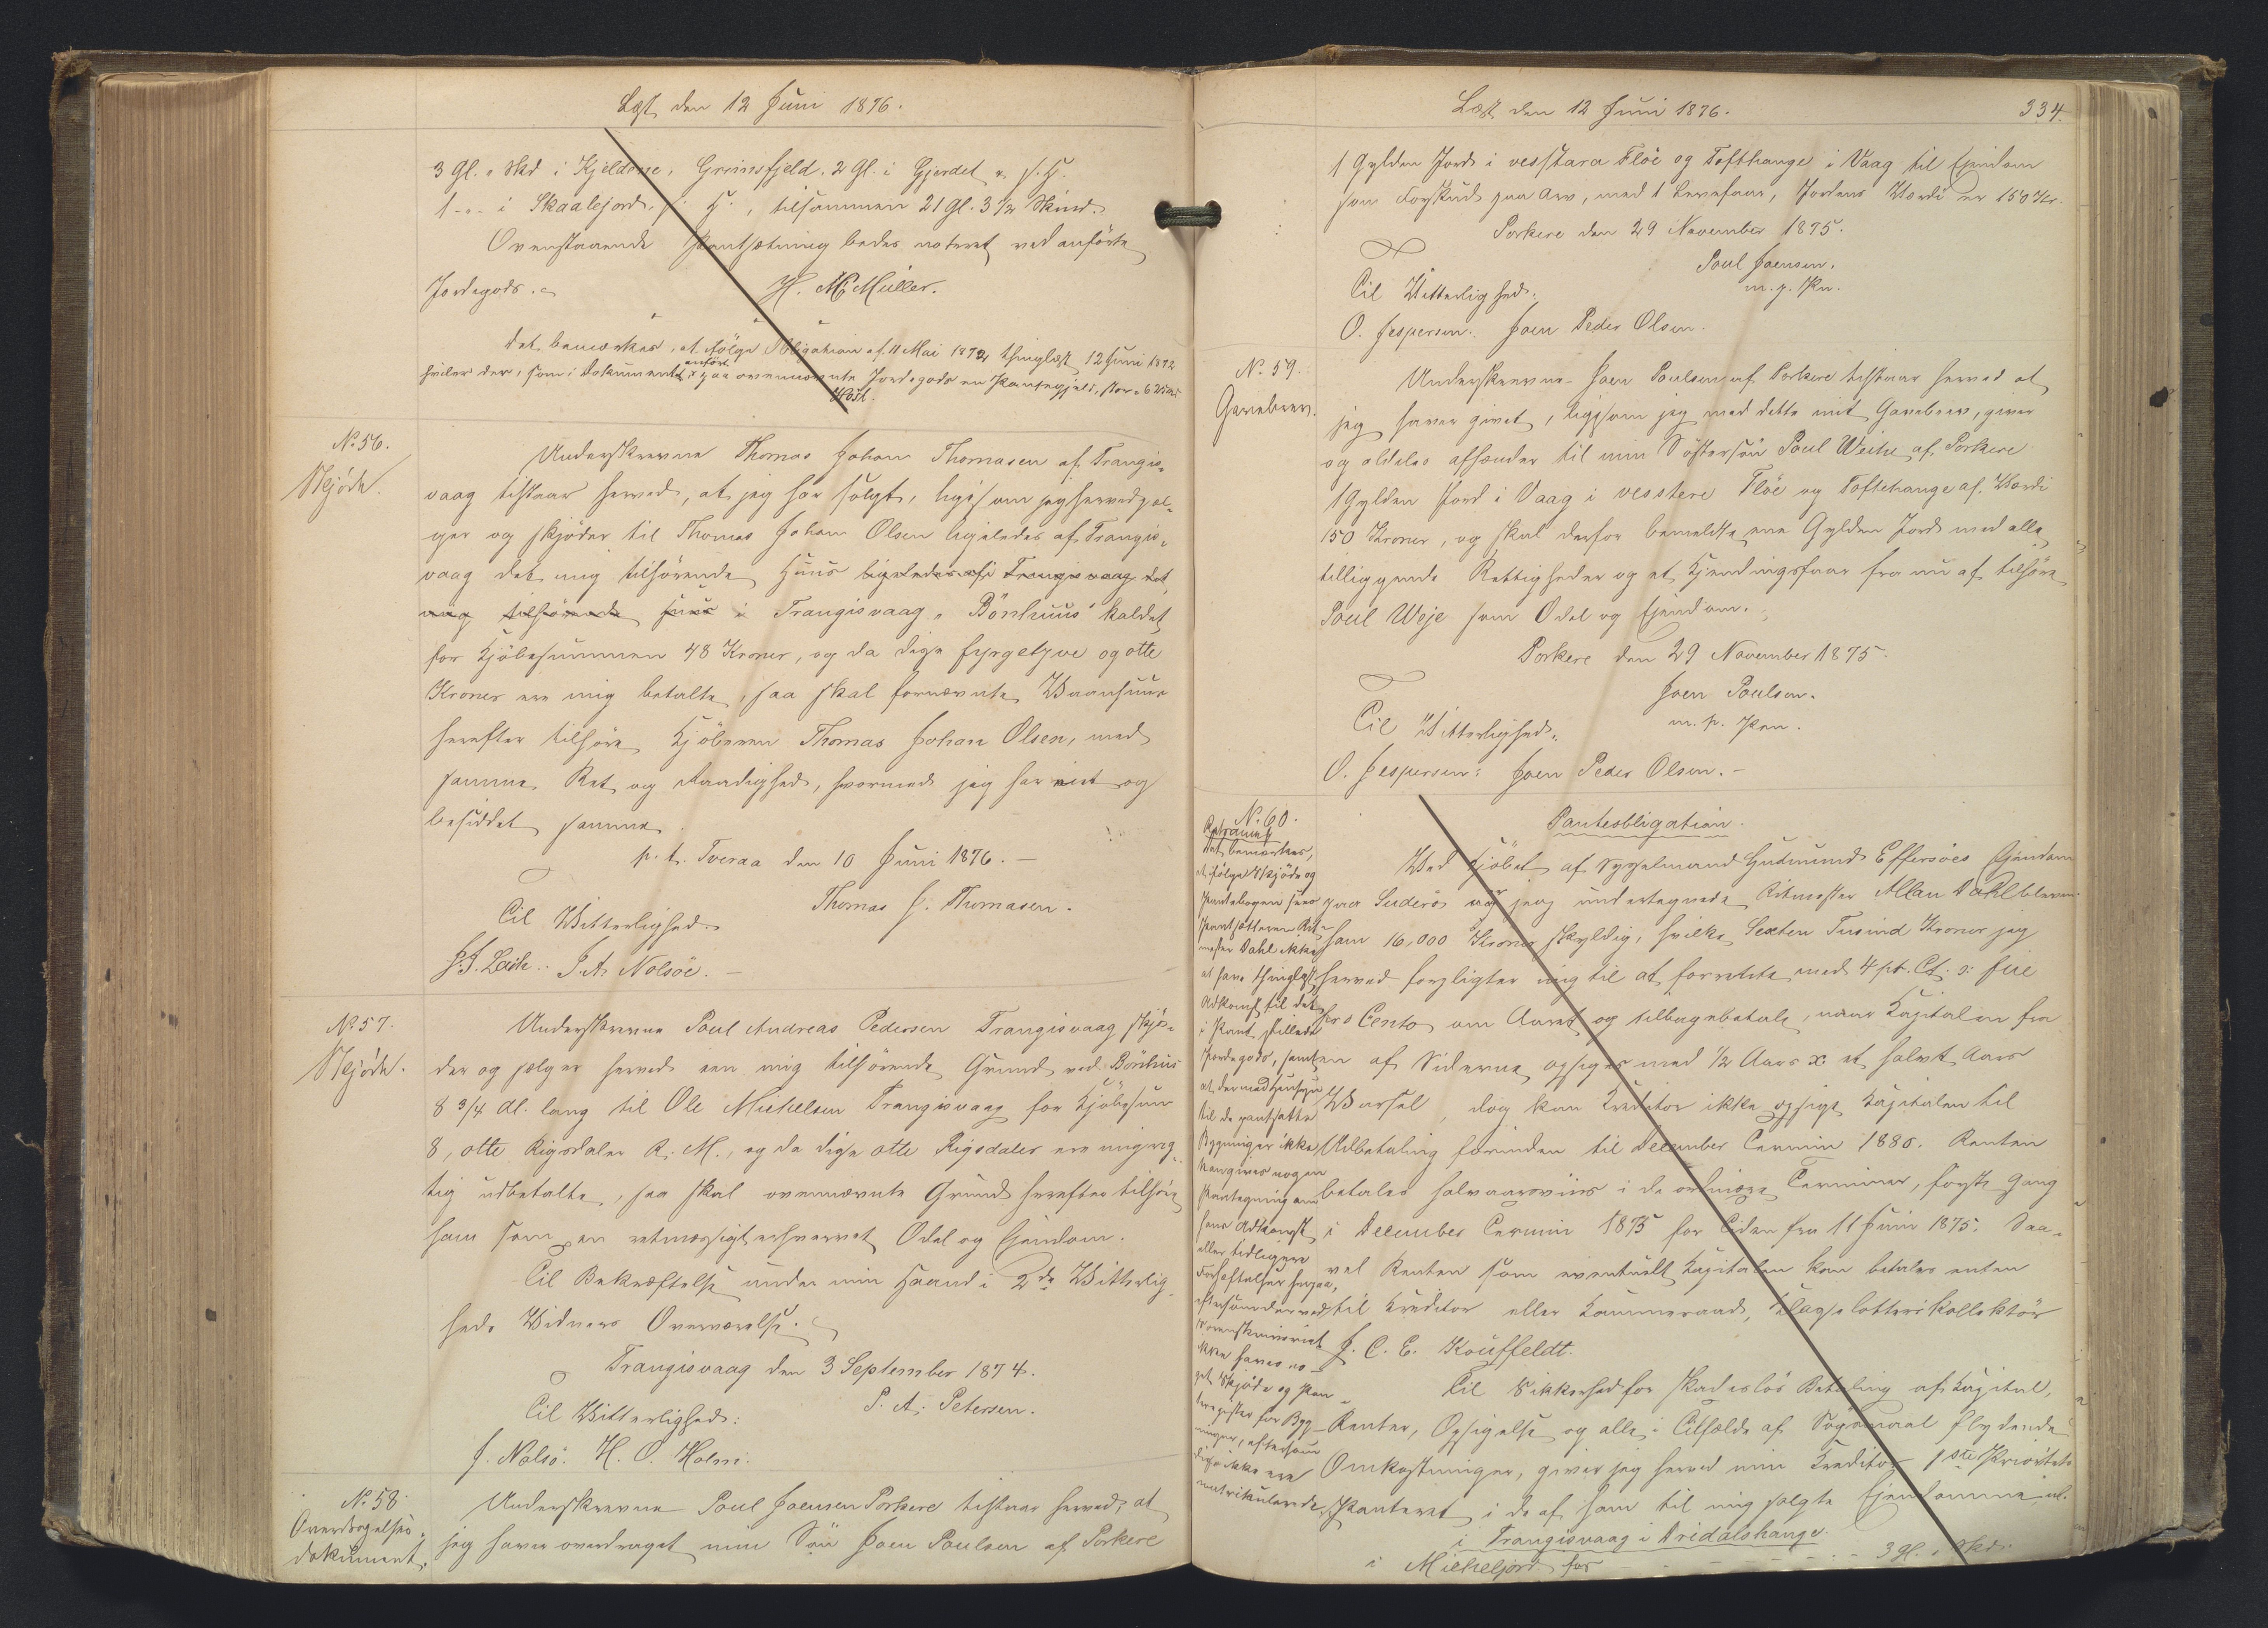 Læst den 12 Juni 1876.
3 Gl. " Skd i Kjeldene, Grimsfjeld. 2 Gl. i Gjerdet
1 - " - i Skaalejord. , tilsammen 21 Gl. 3 1/2 Skind.
Ovenstaaende Pantsætning bedes noteret ved anførte
Jordegods.
H. M. Müller.
Det bemærkes, at ifølge Obligation af 11 Mai 1872 thinglæst 12 Juni 1872
hviler der, som i Dokumentet anført, paa ovennævnte Jordegods en Pantegjæld, stor
Høst.
No 56.
Skjøde.
Underskrevne Thomas Johan Thomasen af Trangis-
vaag tilstaar herved, at jeg har solgt, ligesom jeg herved sæl-
ger og skjøder til Thomas Johan Olsen ligeledes af Trangis-
vaag det mig tilhørende Huus ligeledes af i Trangisvaag det
mig tilhørende Huus i Trangisvaag "Bönhuus" kaldet
for Kjøbesummen 48 Kroner, og da disse fyrgetyve og otte
Kroner ere mig betalte, saa skal fornævnte Vaanhuus
herefter tilhøre Kjøberen Thomas Johan Olsen, med
samme Ret og Raadighed, hvormed jeg har eiet og
besiddet samme.
p. t. Tveraa den 10 Juni 1876. -
Thomas J. Thomasen.
Til Vitterlighed.
J. A. Nolsöe. -
No 57.
Skjøde.
Underskrevne Poul Andreas Pedersen Trangisvaag skjø-
der og sælger herved een mig tilhørende Grund ved Bönhus
8 3/4 Al. lang til Ole Michelsen Trangisvaag for Kjøbesum
8, otte Rigsdaler R. M., og da disse otte Rigsdaler ere mig rig-
tig udbetalte, saa skal ovennævnte Grund herefter tilhøre
ham som en retmæssigt erhvervet Odel og Ejendom.
Til Bekræftelse under min Haand i 2de Vitterlig-
heds Vidners Overværelse.
Trangisvaag den 3 September 1874.
P. A. Petersen.
Til Vitterlighed:
J. Nolsö. H. O. Holm.
No 58.
Overdragelses-
dokument.
Underskrevne Poul Joensen Porkere tilstaar herved, at
jeg haver overdraget min Søn Joen Poulsen af Porkere
Læst den 12 Juni 1876.
334.
1 Gylden Jord i vesstara Flöe og Tofthange i Vaag til Ejendom
som Forskud paa Arv, med 1 Levefaar, Jordens Værdi er 150 Kr.
Porkere den 29 November 1875.
Poul Joensen.
m. p. Pen.
Til Vitterlighed.
O. Jespersen. Joen Peder Olsen.
No. 59.
Gavebrev.
Underskrevne Joen Poulsen af Porkere tilstaar herved at
jeg haver givet, ligesom jeg med dette mit Gavebrev, giver
og aldeles afhænder til min Søstersøn Poul Weihe af Porkere
1 Gylden Jord i Vaag i vesstere Flöe og Toftehange af Værdi
150 Kroner, og skal derfor bemeldte ene Gylden Jord med alle
tilliggende Rettigheder og et Kjendingsfaar fra nu af tilhøre
Poul Weje som Odel og Ejendom.
Porkere den 29 November 1875.
Joen Poulsen.
m. p. Pen.
Til Vitterlighed.
O. Jespersen: Joen Peder Olsen. -
No. 60.
Retraumst
Det bemærkes,
at ifølge Skjøde og
Pantebogen sees
Pantsætteren Rit-
mester Dahl ikke
at have thinglæst
Adkomst til det
i Pant stillede
Jordegods, samt
at der med Hensyn
til de pantsatte
Bygninger ikke
kan gives nogen
Paategning om
hans Adkomst
eller tidligere
Behæftelser herpaa,
eftersom der ved
Sorenskriveriet
ikke haves no-
get Skjøde og Pan-
teregister for Byg-
ninger, eftersom
disse ikke ere
matrikulerede.
Panteobligation.
Ved Kjøbet af Sysselmand Gudmund Effersöes Ejendom
paa Suderö er jeg undertegnede Ritmester Allan Dahl bleven
ham 16,000 Kroner skyldig, hvilke Sexten Tusind Kroner jeg
herved forpligter mig til at forrente med 4 pt. Ct. o: fire
pro Cento om Aaret og tilbagebetale, naar Kapitalen fra
en af Siderne opsiges med 1/2 Aars o: et halvt Aars
Varsel, dog kan Kreditor ikke opsige Kapitalen til
Udbetaling forinden til December Termin 1880. Renten
betales halvaarsviis i de ordinære Terminer, første Gang
i December Termin 1875 for Tiden fra 11 Juni 1875. Saa-
vel Renten som eventuelt Kapitalen kan betales enten
til Kreditor eller Kammeraad, Klasselotterikollektör
J. C. E. Kouffeldt.
Til Sikkerhed for skadesløs Betaling af Kapital,
Renter, Opsigelse og alle i Tilfælde af Søgsmaal flydende
Omkostninger, giver jeg herved min Kreditor 1ste Prioritets
Panteret i de af ham til mig solgte Ejendomme
i Trangisvaag i Dridalshange.
i Mickeljord for - - - - - - - 3 gl. " Skd.